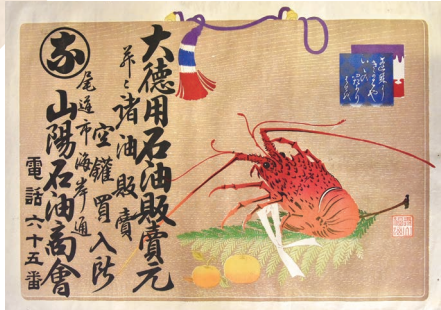 大徳用石油販賣元
并ニ諸油販賣
空鑵買入所
尾道市海岸通
山陽石油商會
電話六十五番